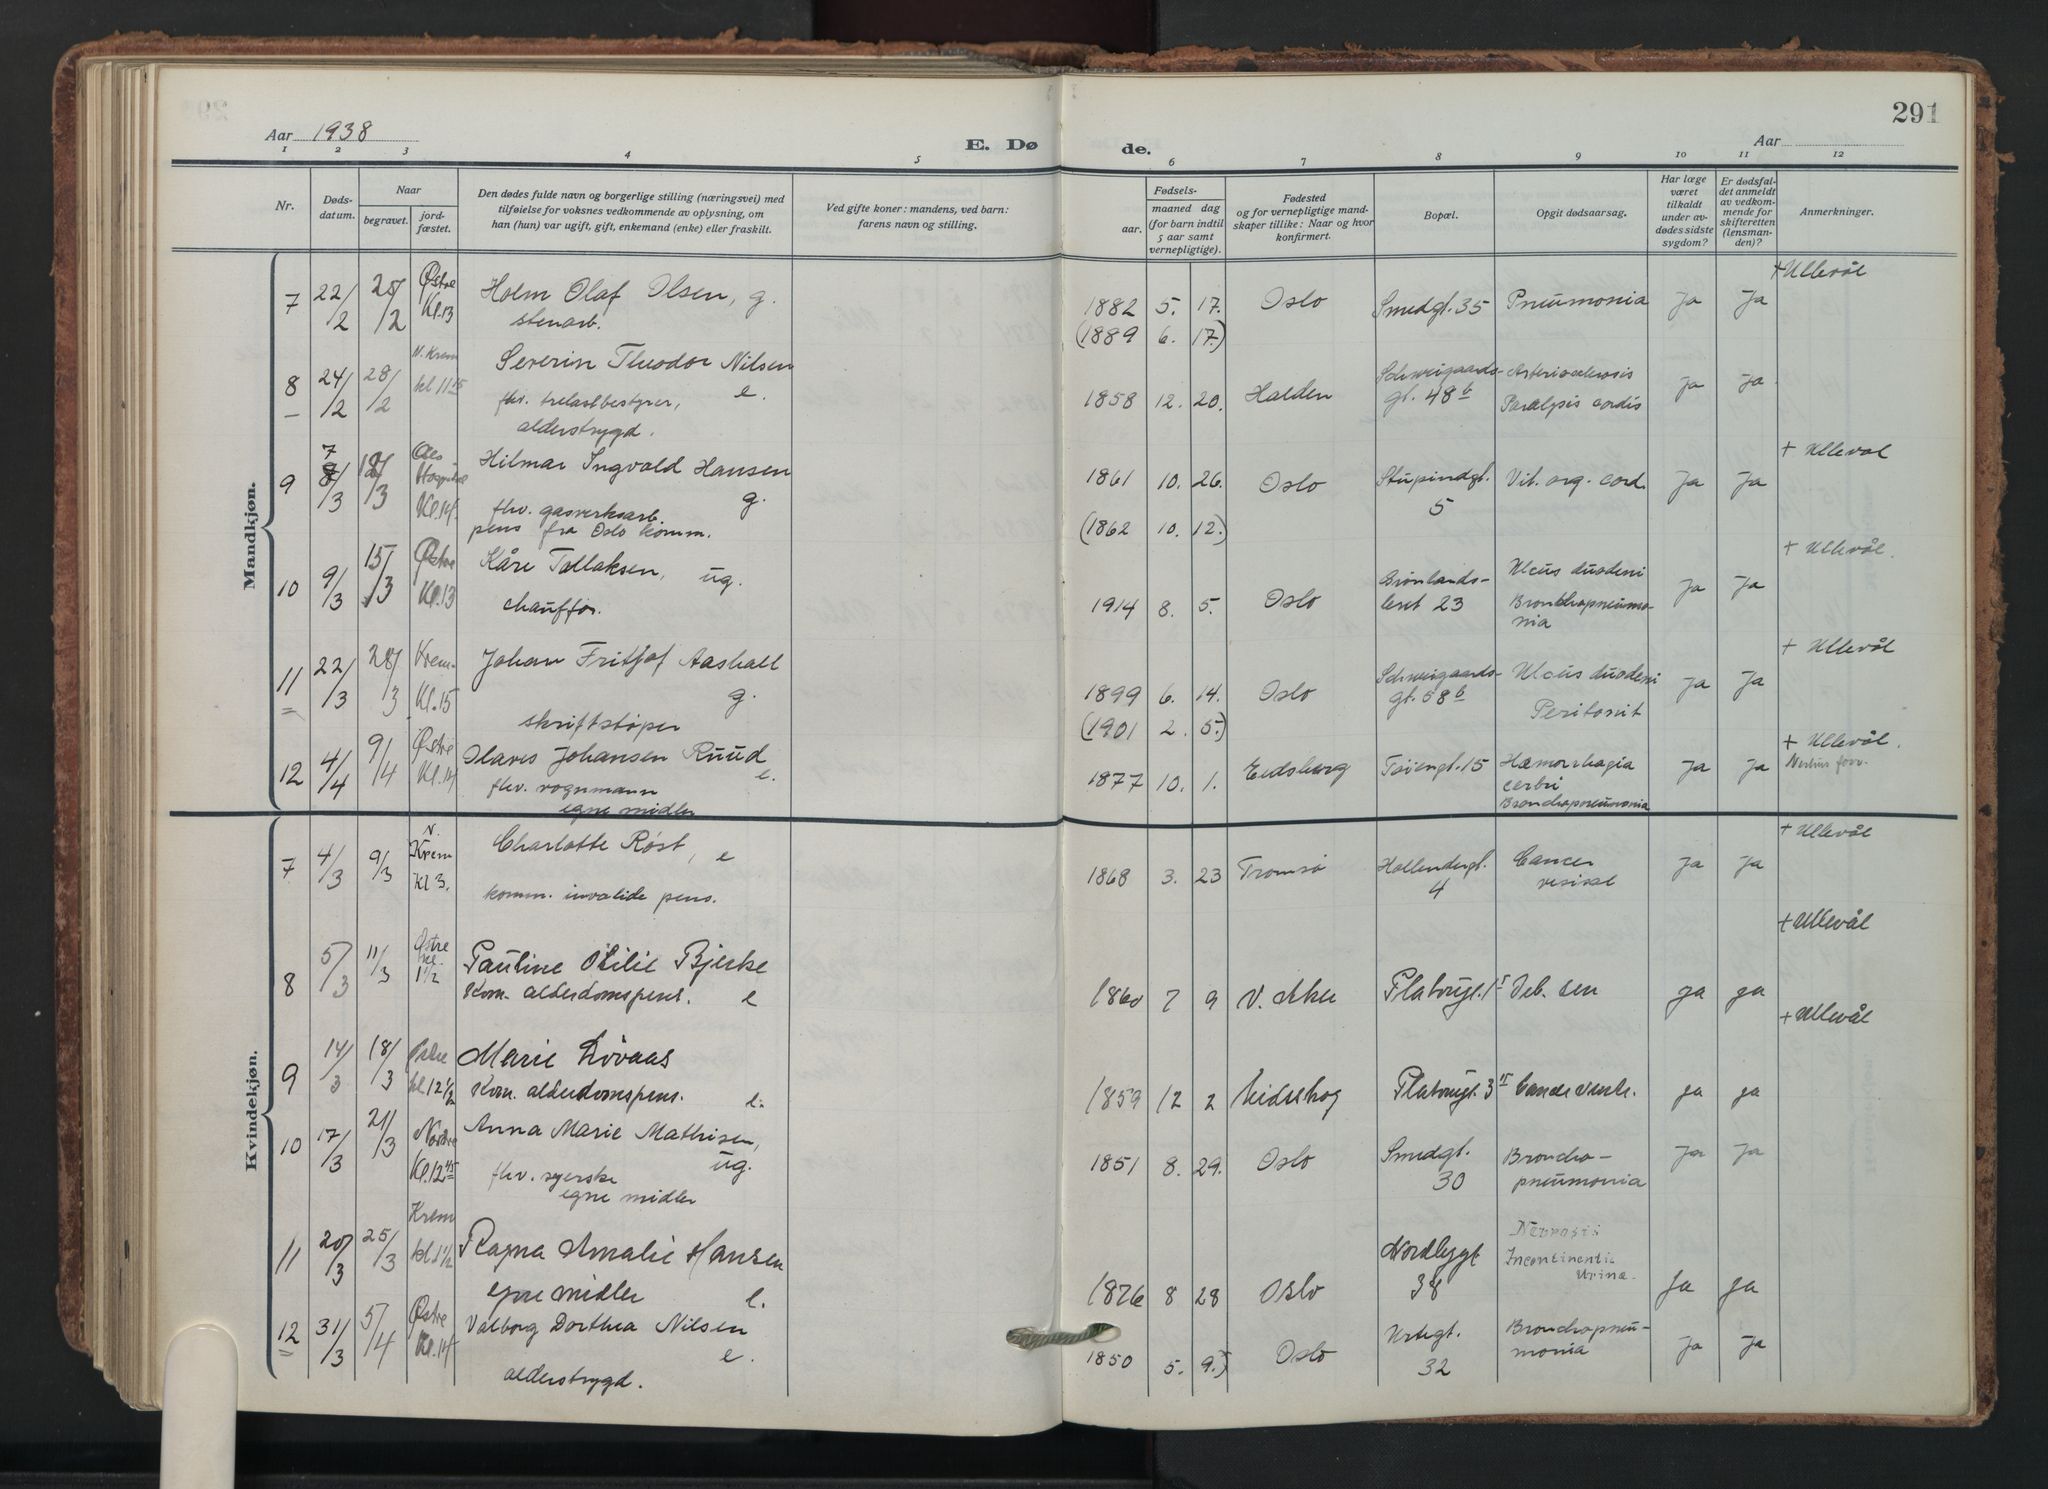 291
Aar 1938
E. Dø
de.
Aar
1 2 3 4 5 6 7 8 9 10 11 12
Nr.
Døds-
datum.
Naar
begravet.
jord-
fæstet.
Den dødes fulde navn og borgerlige stilling (næringsvei) med
tilføielse for voksnes vedkommende av oplysning, om
han (hun) var ugift, gift, enkemand (enke) eller fraskilt.
Ved gifte koner: mandens, ved barn:
farens navn og stilling.
Fødsels-
aar.
maaned dag
(for barn indtil
5 aar samt
vernepligtige).
Fødested
og for vernepligtige mand-
skaper tillike: Naar og hvor
konfirmert.
Bopæl.
Opgit dødsaarsag.
Har læge
været
tilkaldt
under av-
dødes sidste
sygdom?
Er dødsfal-
det anmeldt
av vedkom-
mende for
skifteretten
(lensman-
den)?
Anmerkninger.
Mandkjøn.
7 22/2 25/2 Østre Kl.13 Holm Olaf Olsen, g. 1882 5. 17. Oslo Smedgt. 35 Pneumonia Ja Ja + Ullevål
stenarb. (1889 6. 17.)
8 24/2 28/2 N. Krem kl 11 15 Severin Theodor Nilsen e. 1858 12. 20. Halden Schweigaards- Arteriosclerosis Ja Ja
fhv. trelastbestyrer, gt. 48 b Paralysis cordis
alderstrygd.
9 7/3 12/3 Kl.14. Hilmar Ingvald Hansen g. 1861 10. 26. Oslo Stupindgt. Vit. org. cord. Ja Ja + Ullevål
fhv. gasverksarb. 5
pens fra Oslo komm. (1862 10. 12.)
10 9/3 15/3 Østre Kl.13 Kåre Tallaksen, ug. 1914 8. 5. Oslo Grønlands- Ulcus duodeni Ja Ja + Ullevål.
chauffør. leret 23 Bronchopneumo-
nia
11 22/3 28/3 Krem- Kl.15 Johan Fritjof Aashall g. 1899 6. 14. Oslo Schweigaards- Ulcus duodeni Ja Ja + Ullevål
skriftstøper gt. 58 b Peritonit
(1901 2. 5.)
12 4/4 9/4 Østre Kl.14 Olaves Johansen Ruud e. 1877 10. 1. Eidsberg Tøiengt. 15 Hæmorrhagia Ja Ja + Ullevål.
fhv. vognmann cerbri
egne midler Bronchopneumonia
Kvindekjøn.
7 4/3 9/3 N. Krem Kl 3. Charlotte Røst, e 1868 3. 23 Tromsø Hollendergt. Cancer Ja Ja + Ullevål
komm. invalide pens. 4 vesicae
8 5/3 11/3 Østre kl. 1 1/2 Pauline Otilie Bjerke 1860 7 9 V. Aker Platougt. 15 Deb. sen ja ja + Ullevål
Kom. alderdomspens. e
9 14/3 18/3 Østre kl 12 1/2 Marie Løvaas 1859 12 2 Eidskog Platougt. 3 ja ja + Ullevål
Kom. alderdomspens. e.
10 17/3 21/3 Nordre Kl.12 45 Anna Marie Mathisen, ug. 1851 8. 29. Oslo Smedgt. Broncho- Ja Ja
fhv. syerske 30 pneumonia
egne midler
11 20/3 25/3 Krem kl 1 1/2 Ragna Amalie Hansen 1876 8 28 Oslo Nordbygt Nevrosis Ja ja
egne midler e. 38 Incontinentia
Urina.
12 31/3 5/4 Østre Kl.14 Valborg Dorthea Nilsen e. 1850 5. 9. Oslo Urtegt. Bronchopneu- Ja Ja
alderstrygd. 32 monia